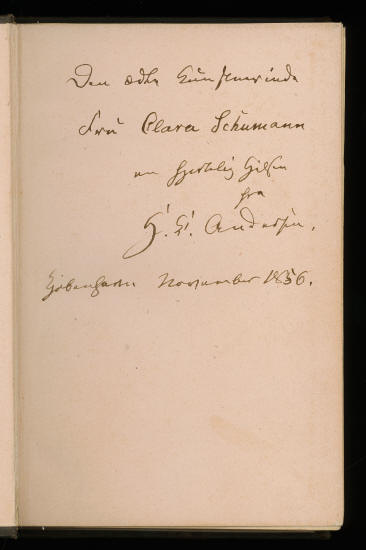 Den ædle Kunstnerinde
Fru Clara Schumann
en hjertelig Hilsen
fra
H. C. Andersen.
Kjøbenhavn November 1856.